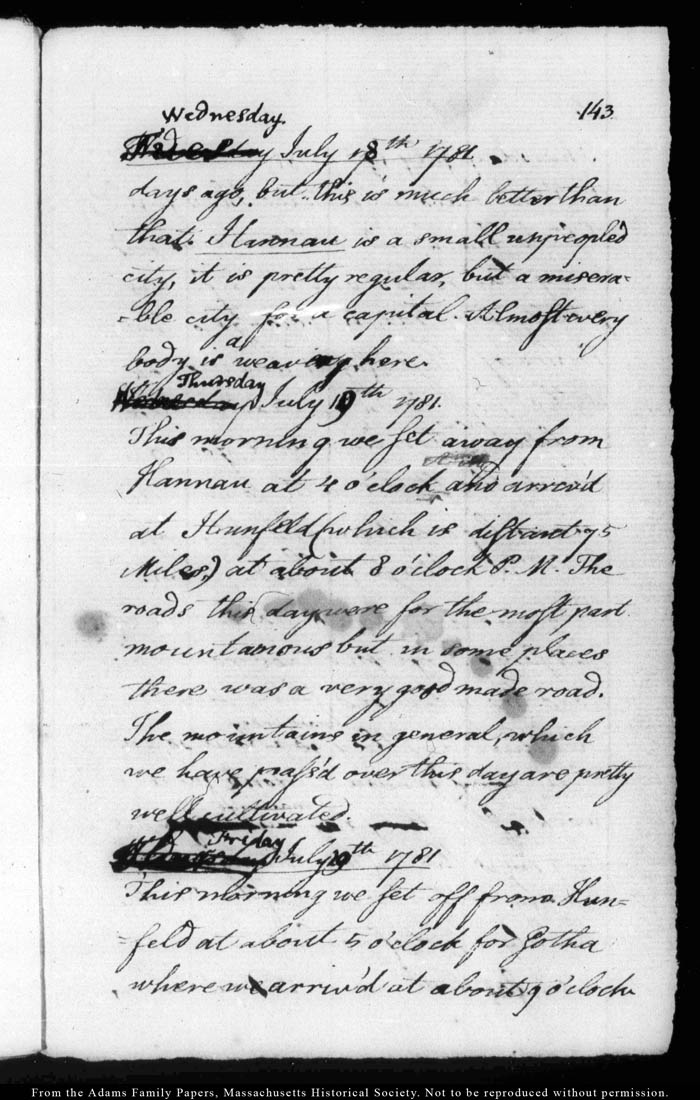 143
Wednesday.
July 18th 1781.
days ago, but this is much better than
that. Hannau is a small unpeopled
city, it is pretty regular, but a misera=
=ble city for a capital. Almost every
body is a weaver here.
Thursday
July 19th 1781.
This morning we set away from
Hannau at 4 o'clock and arriv'd
at Hunfeld (which is distant 75
Miles,) at about 8 o'clock P. M. The
roads this day were for the most part
mountainous but in some places
there was a very good made road.
The mountains in general, which
we have pass'd over this day are pretty
well cultivated.
Friday
July 19th 1781
This morning we set off from Hun=
=feld at about 5 o'clock for Gotha
where we arriv'd at about 9 o'clock
From the Adams Family Papers, Massachusetts Historical Society. Not to be reproduced without permission.